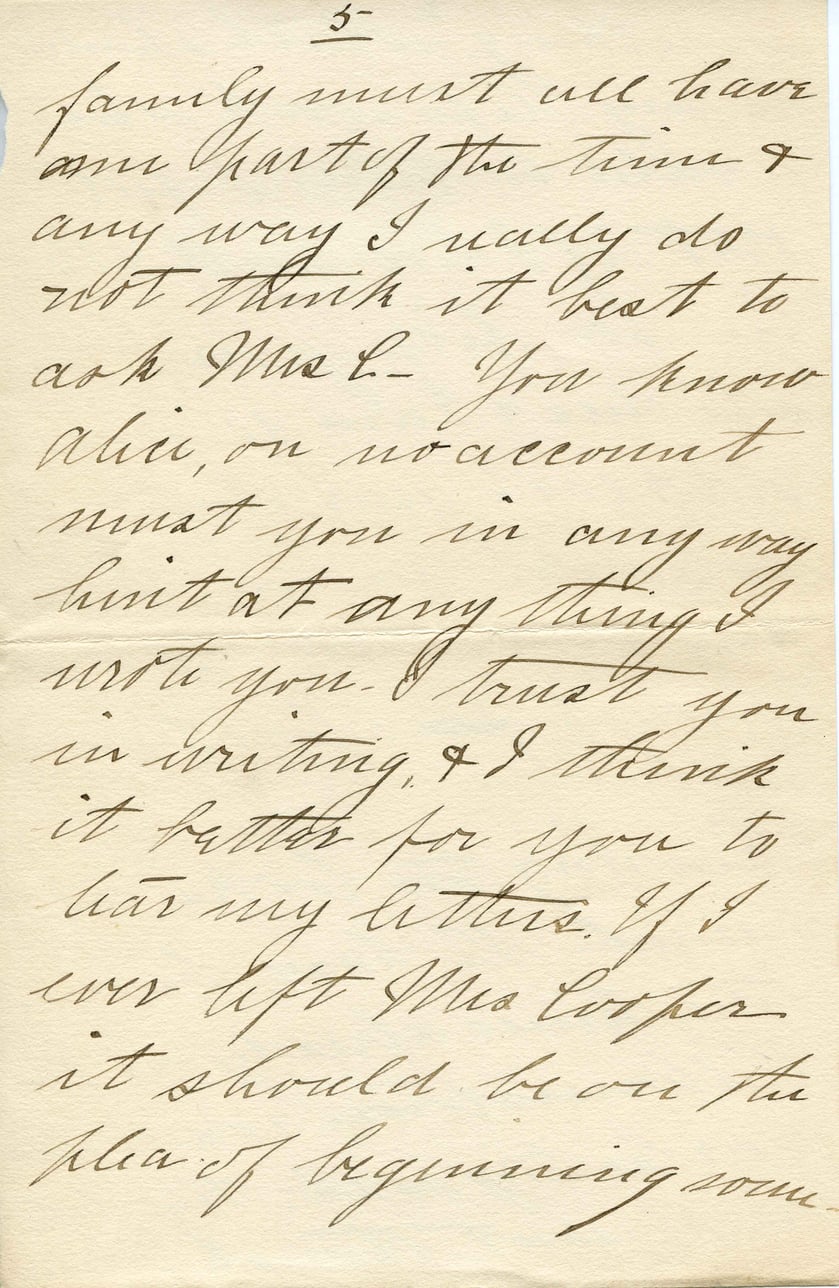 5
family must all have
one part of the time &
any way I really do
not think it best to
ask Mrs C.- You know
Alice, on no account
must you in any way
hint at any thing I
wrote you - I trust you
in writing, & I think
it better for you to
tear my letters. If I
ever left Mrs Cooper
it should be on the
plea of beginning some-